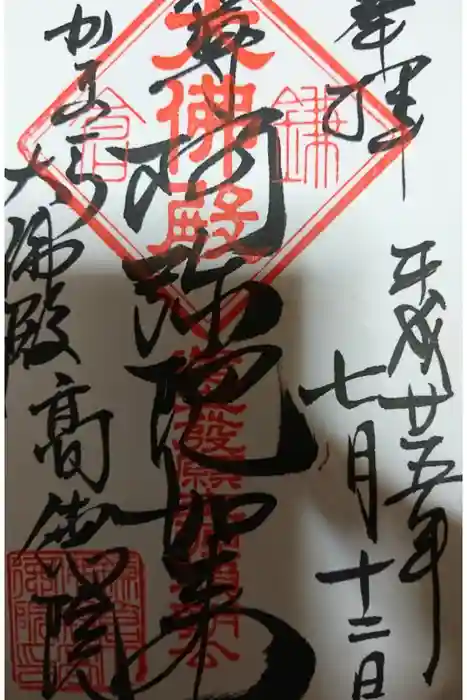 奉拝
平成廿五年
七月十二日
阿弥陀如来
大佛殿
鎌倉
かまくら
大佛殿高徳院